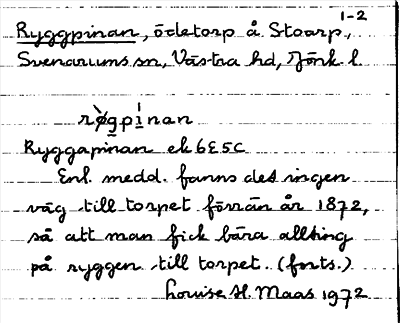 1-2
Ryggpinan, ödetorp å Stoarp,
Svenarums sn, Västra hd, Jönk l.
rø̀gpínan
Ryggapinan ek 6E5c
Enl. medd. fanns det ingen
väg till torpet förrän år 1872,
så att man fick bära allting
på ryggen till torpet. (forts.)
Louise H. Maas 1972